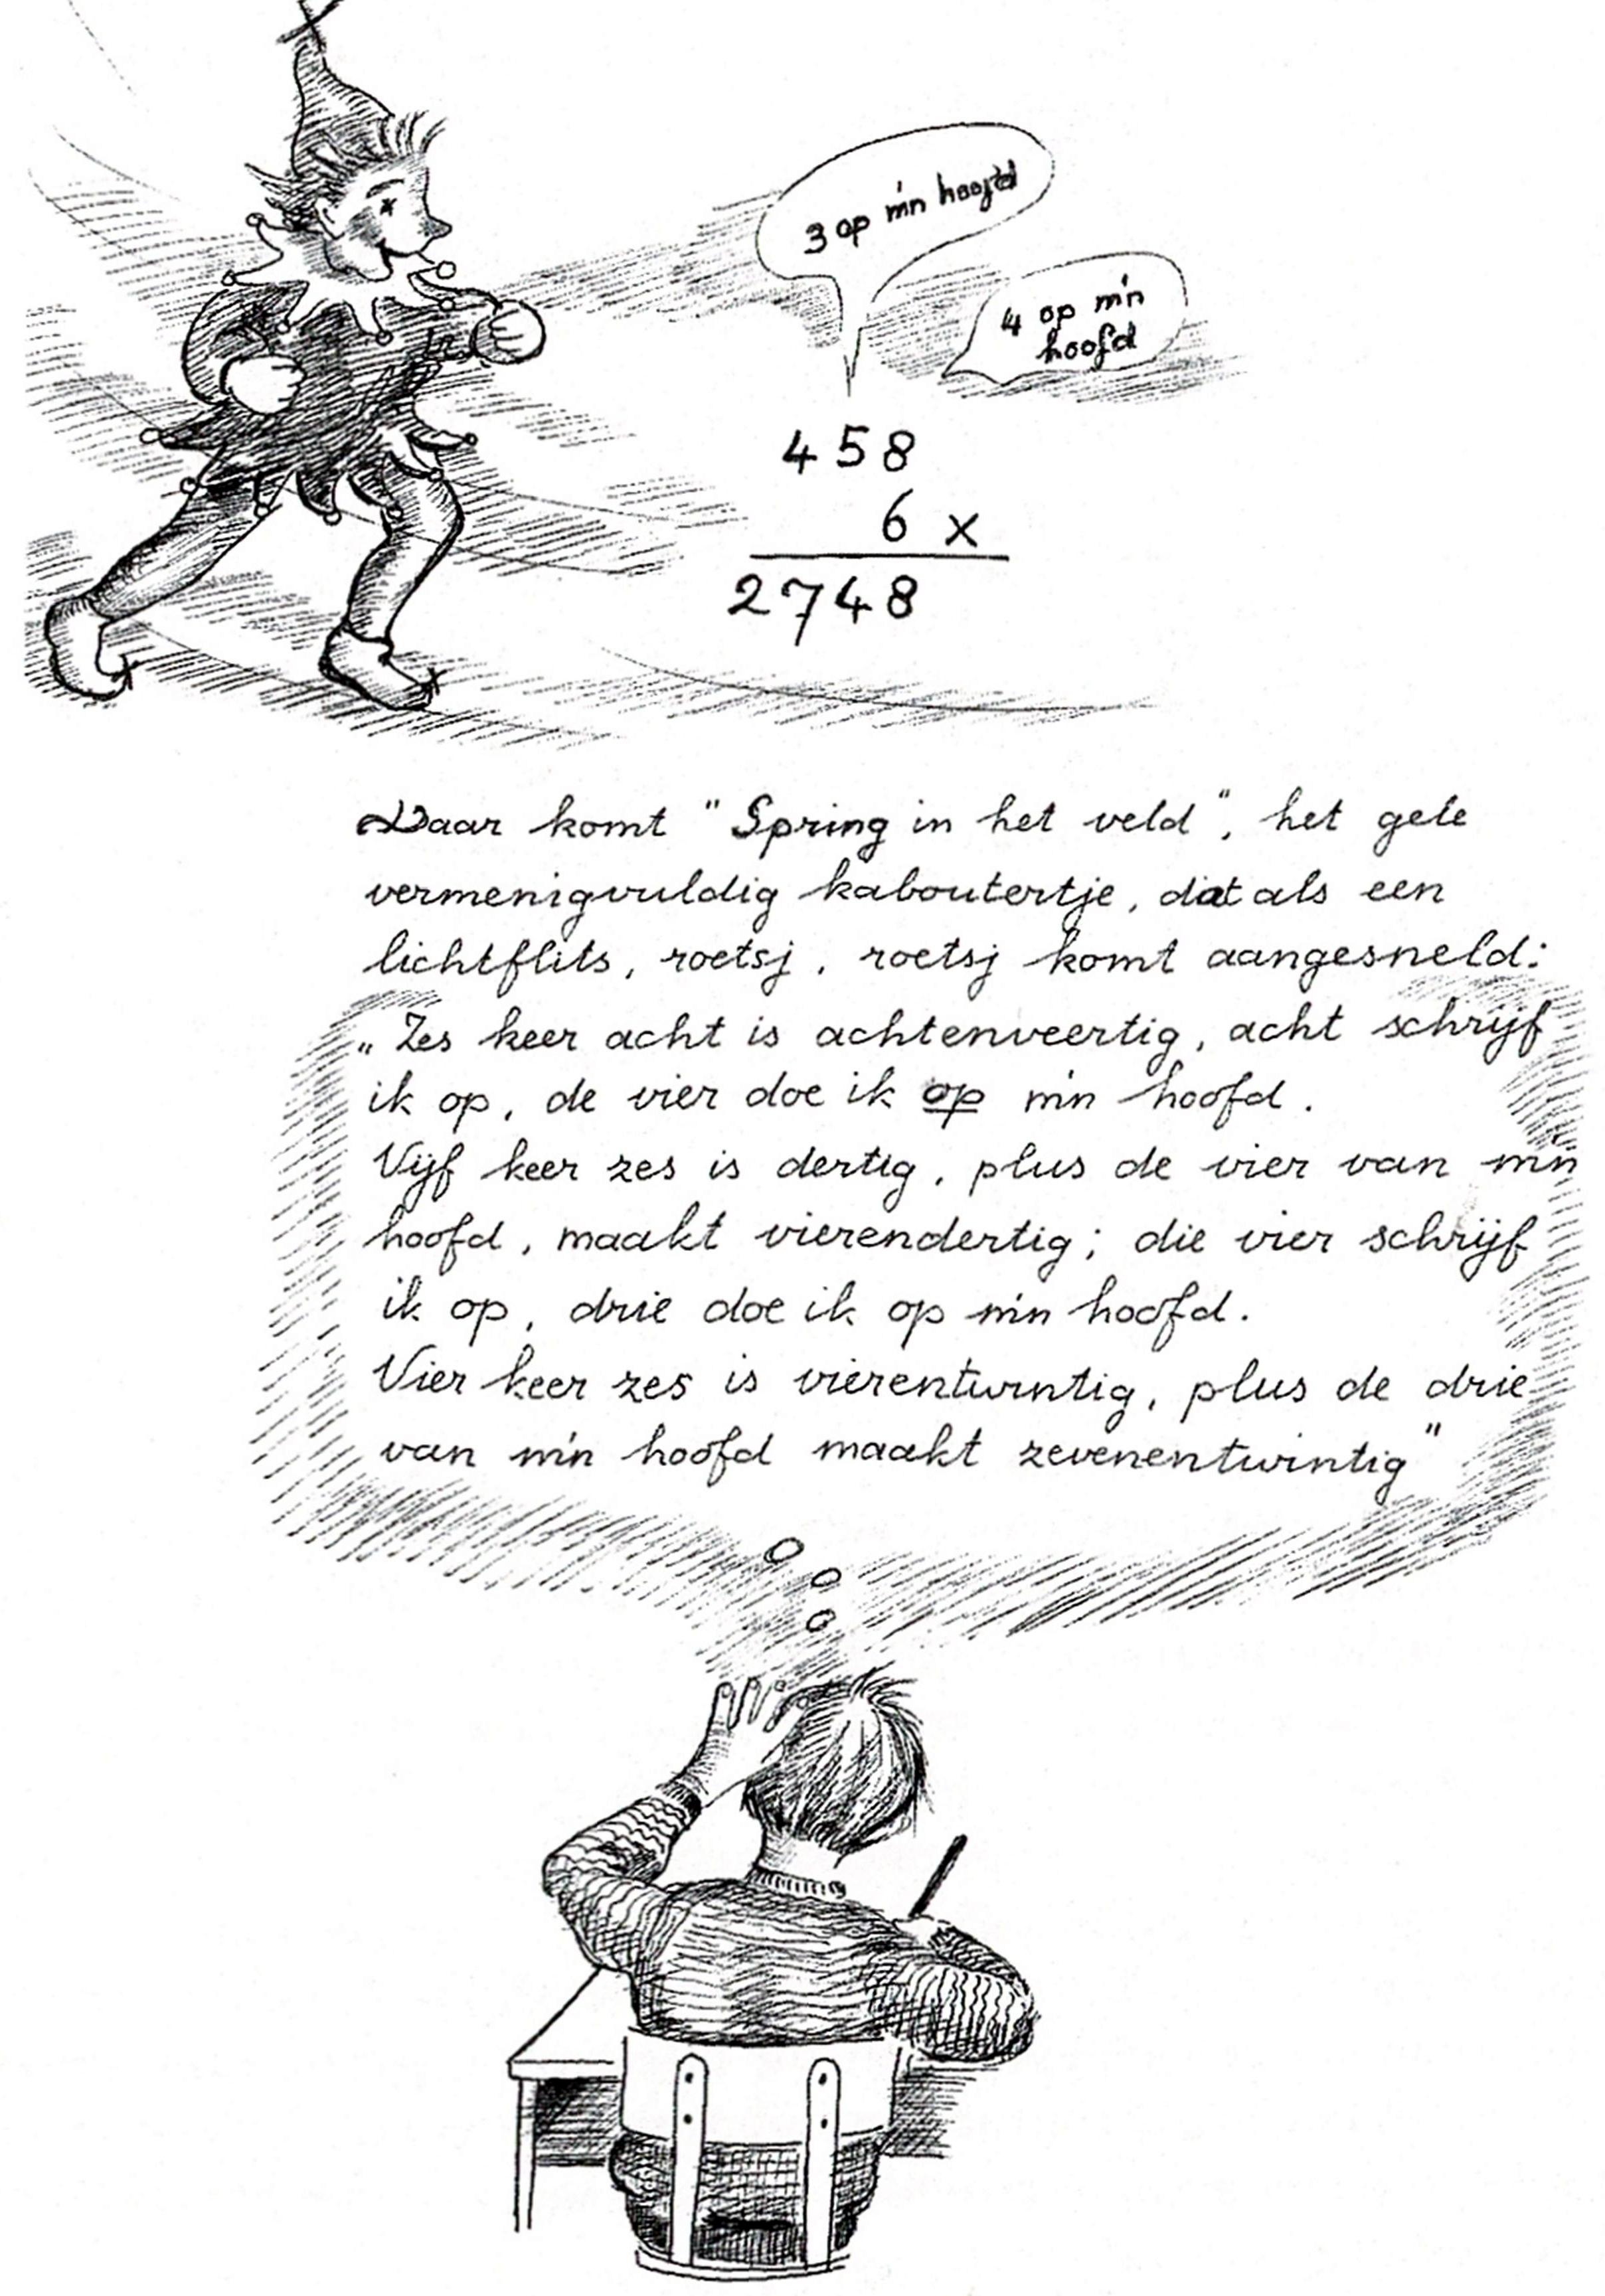 3 op m'n hoofd
4 op m'n
hoofd
458
6 x
2748
Daar komt "Spring in het veld", het gele
vermenigvuldig kaboutertje, dat als een
lichtflits, roetsj, roetsj komt aangesneld:
„Zes keer acht is achtenveertig, acht schrijf
ik op, de vier doe ik op m'n hoofd.
Vijf keer zes is dertig, plus de vier van m'n
hoofd, maakt vierendertig; die vier schrijf
ik op, drie doe ik op m'n hoofd.
Vier keer zes is vierentwintig, plus de drie
van m'n hoofd maakt zevenentwintig"